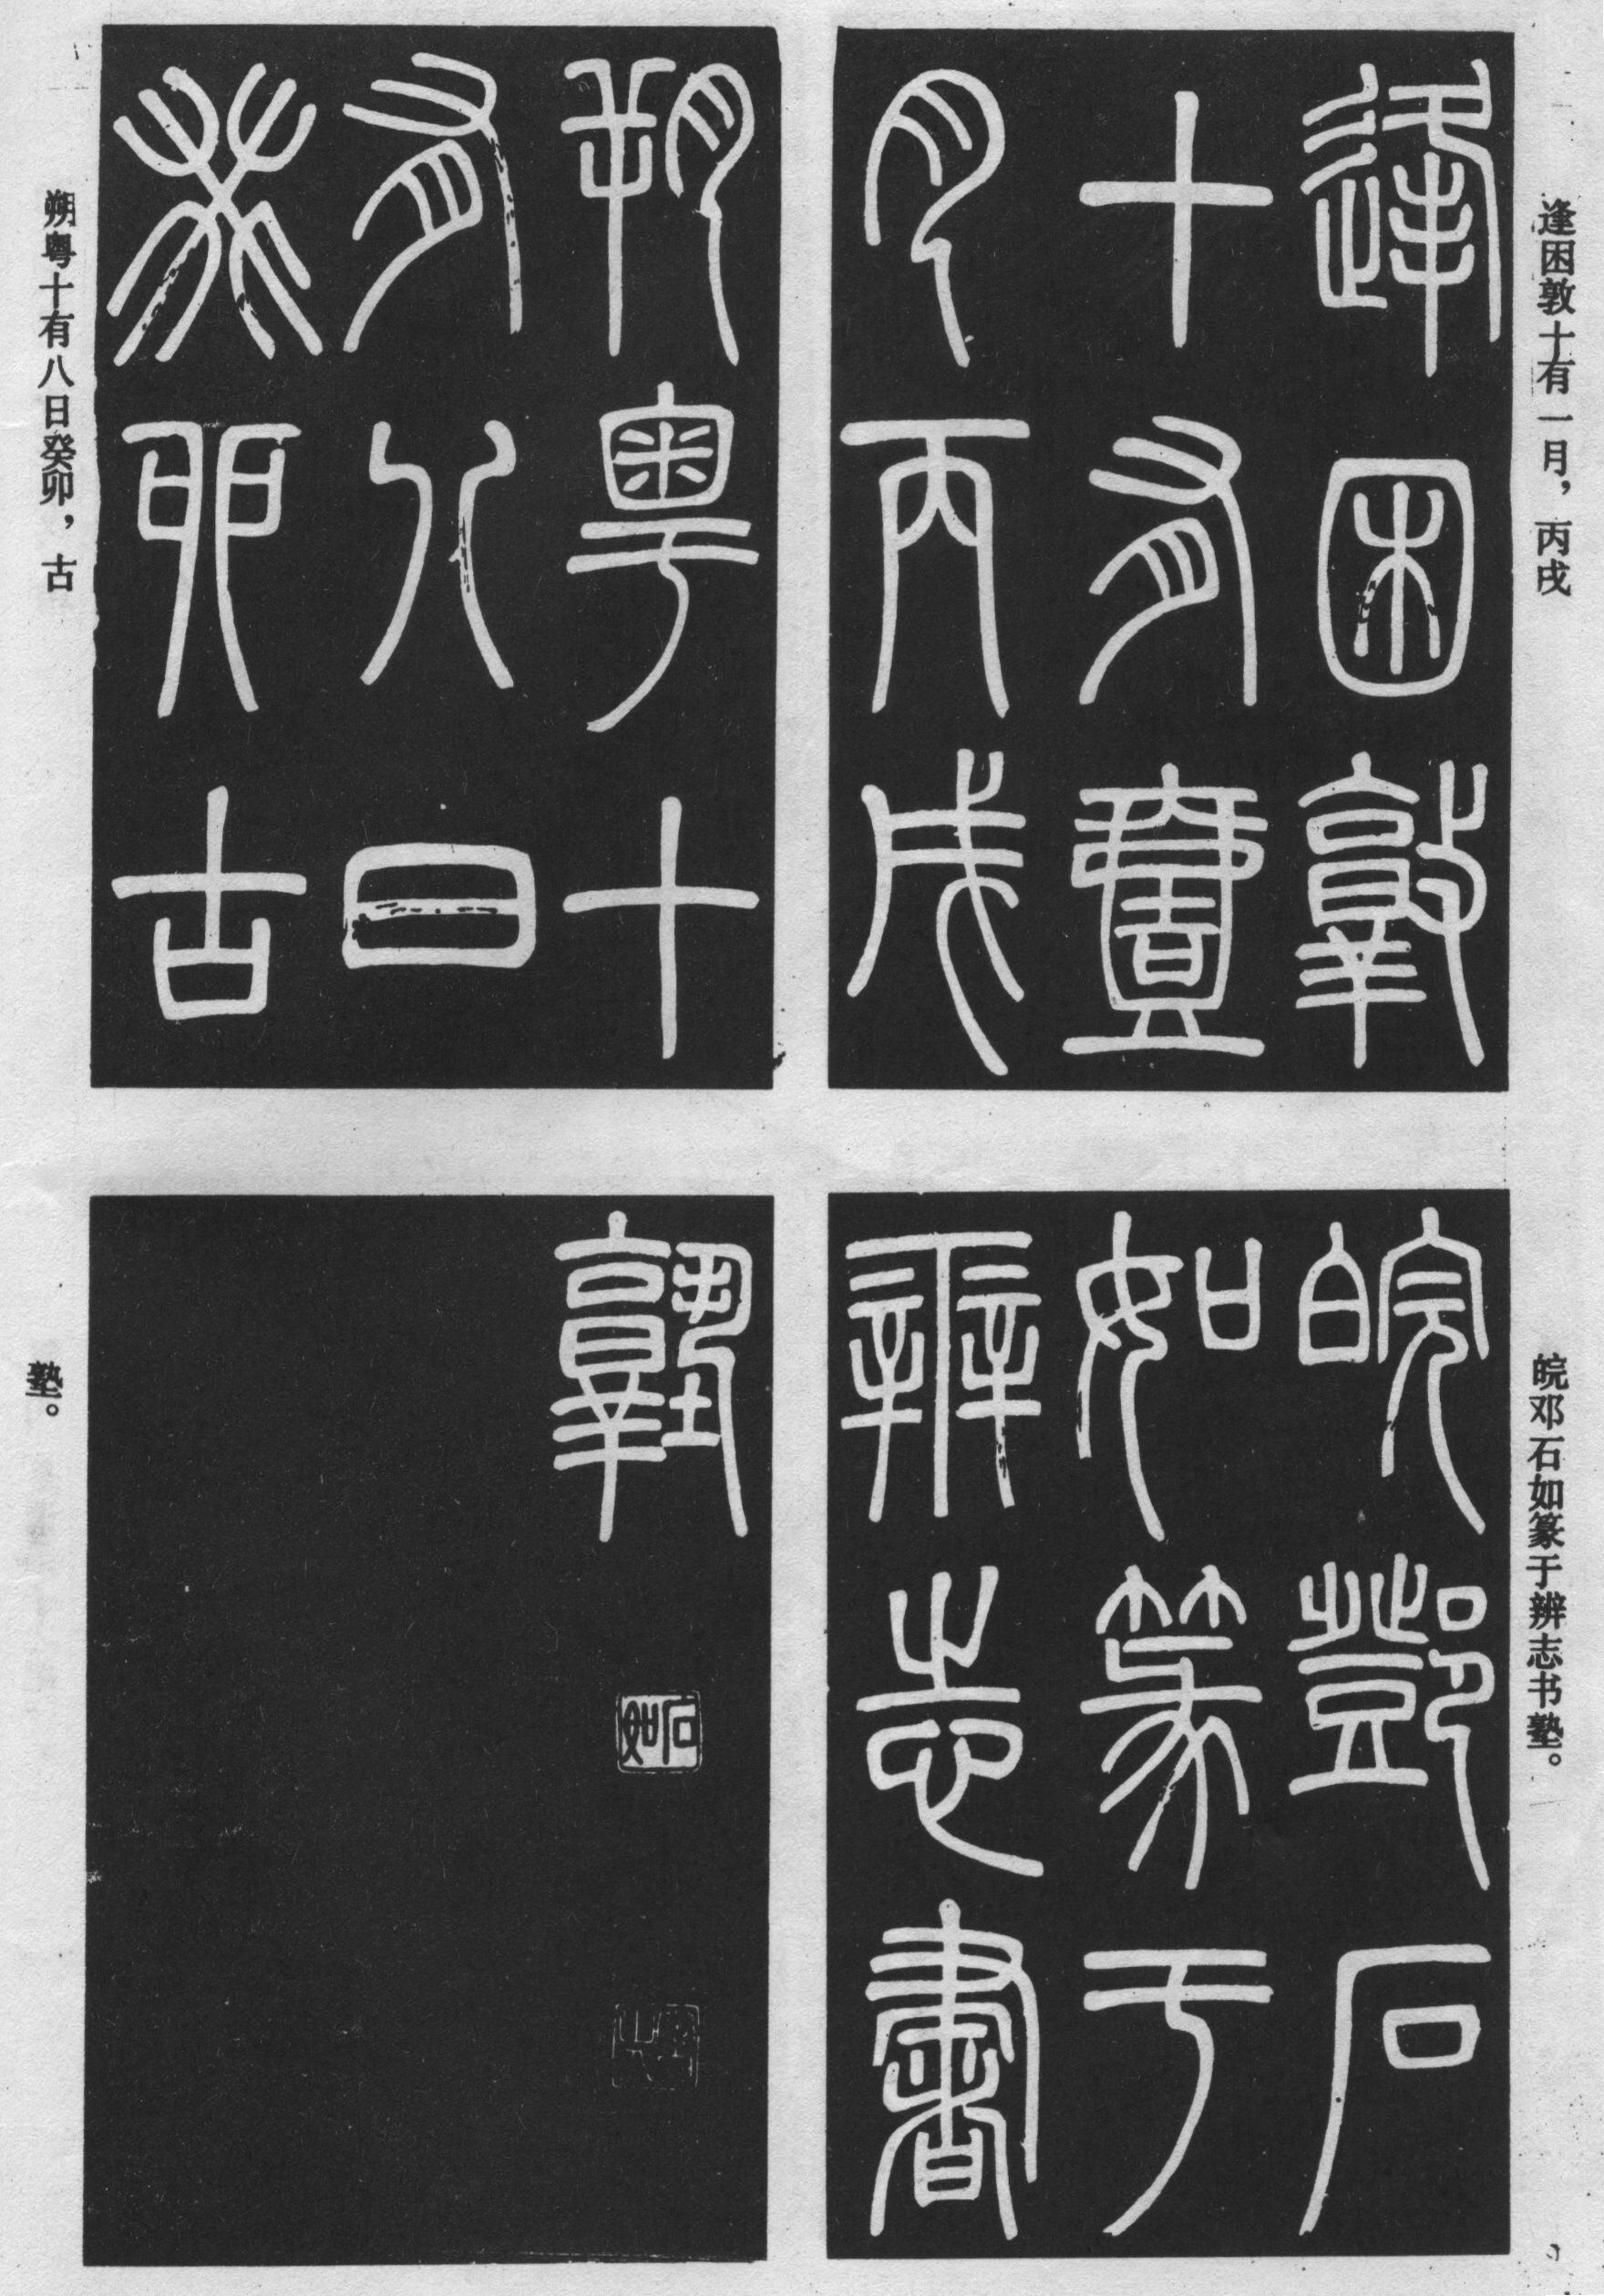 逢困敦十有一月，丙戌
逢困敦
十有壹
月丙戌
朔粤十
有八日
癸卯古
朔粤十有八日癸卯，古
皖邓石如篆于辨志书塾。
皖鄧石
如篆于
辨志書
塾
石如
塾。